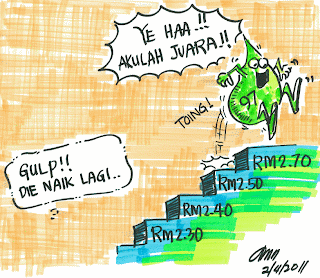 YE HAA!!!
AKULAH JUARA!!
97
TOING!
GULP!!
DIE NAIK LAGI..
RM2.70
RM2.50
RM2.40
RM2.30
2/4/2011